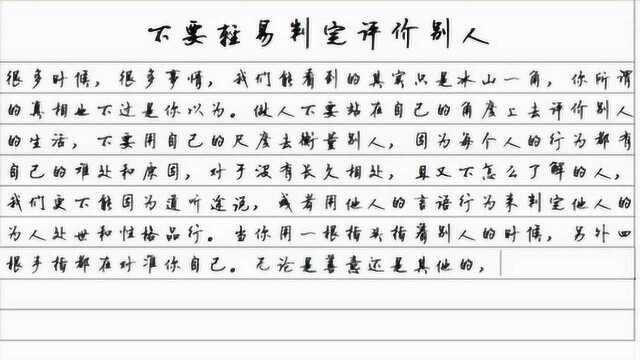 不要轻易判定评价别人
很多时候，很多事情，我们能看到的其实只是冰山一角，你所谓
的真相也不过是你以为。做人不要站在自己的角度上去评价别人
的生活，不要用自己的尺度去衡量别人，因为每个人的行为都有
自己的难处和原因，对于没有长久相处，且又不怎么了解的人，
我们更不能因为道听途说，或者用他人的言语行为来判定他人的
为人处世和性格品行。当你用一根指头指着别人的时候，另外四
根手指都在对准你自己。无论是善意还是其他的，